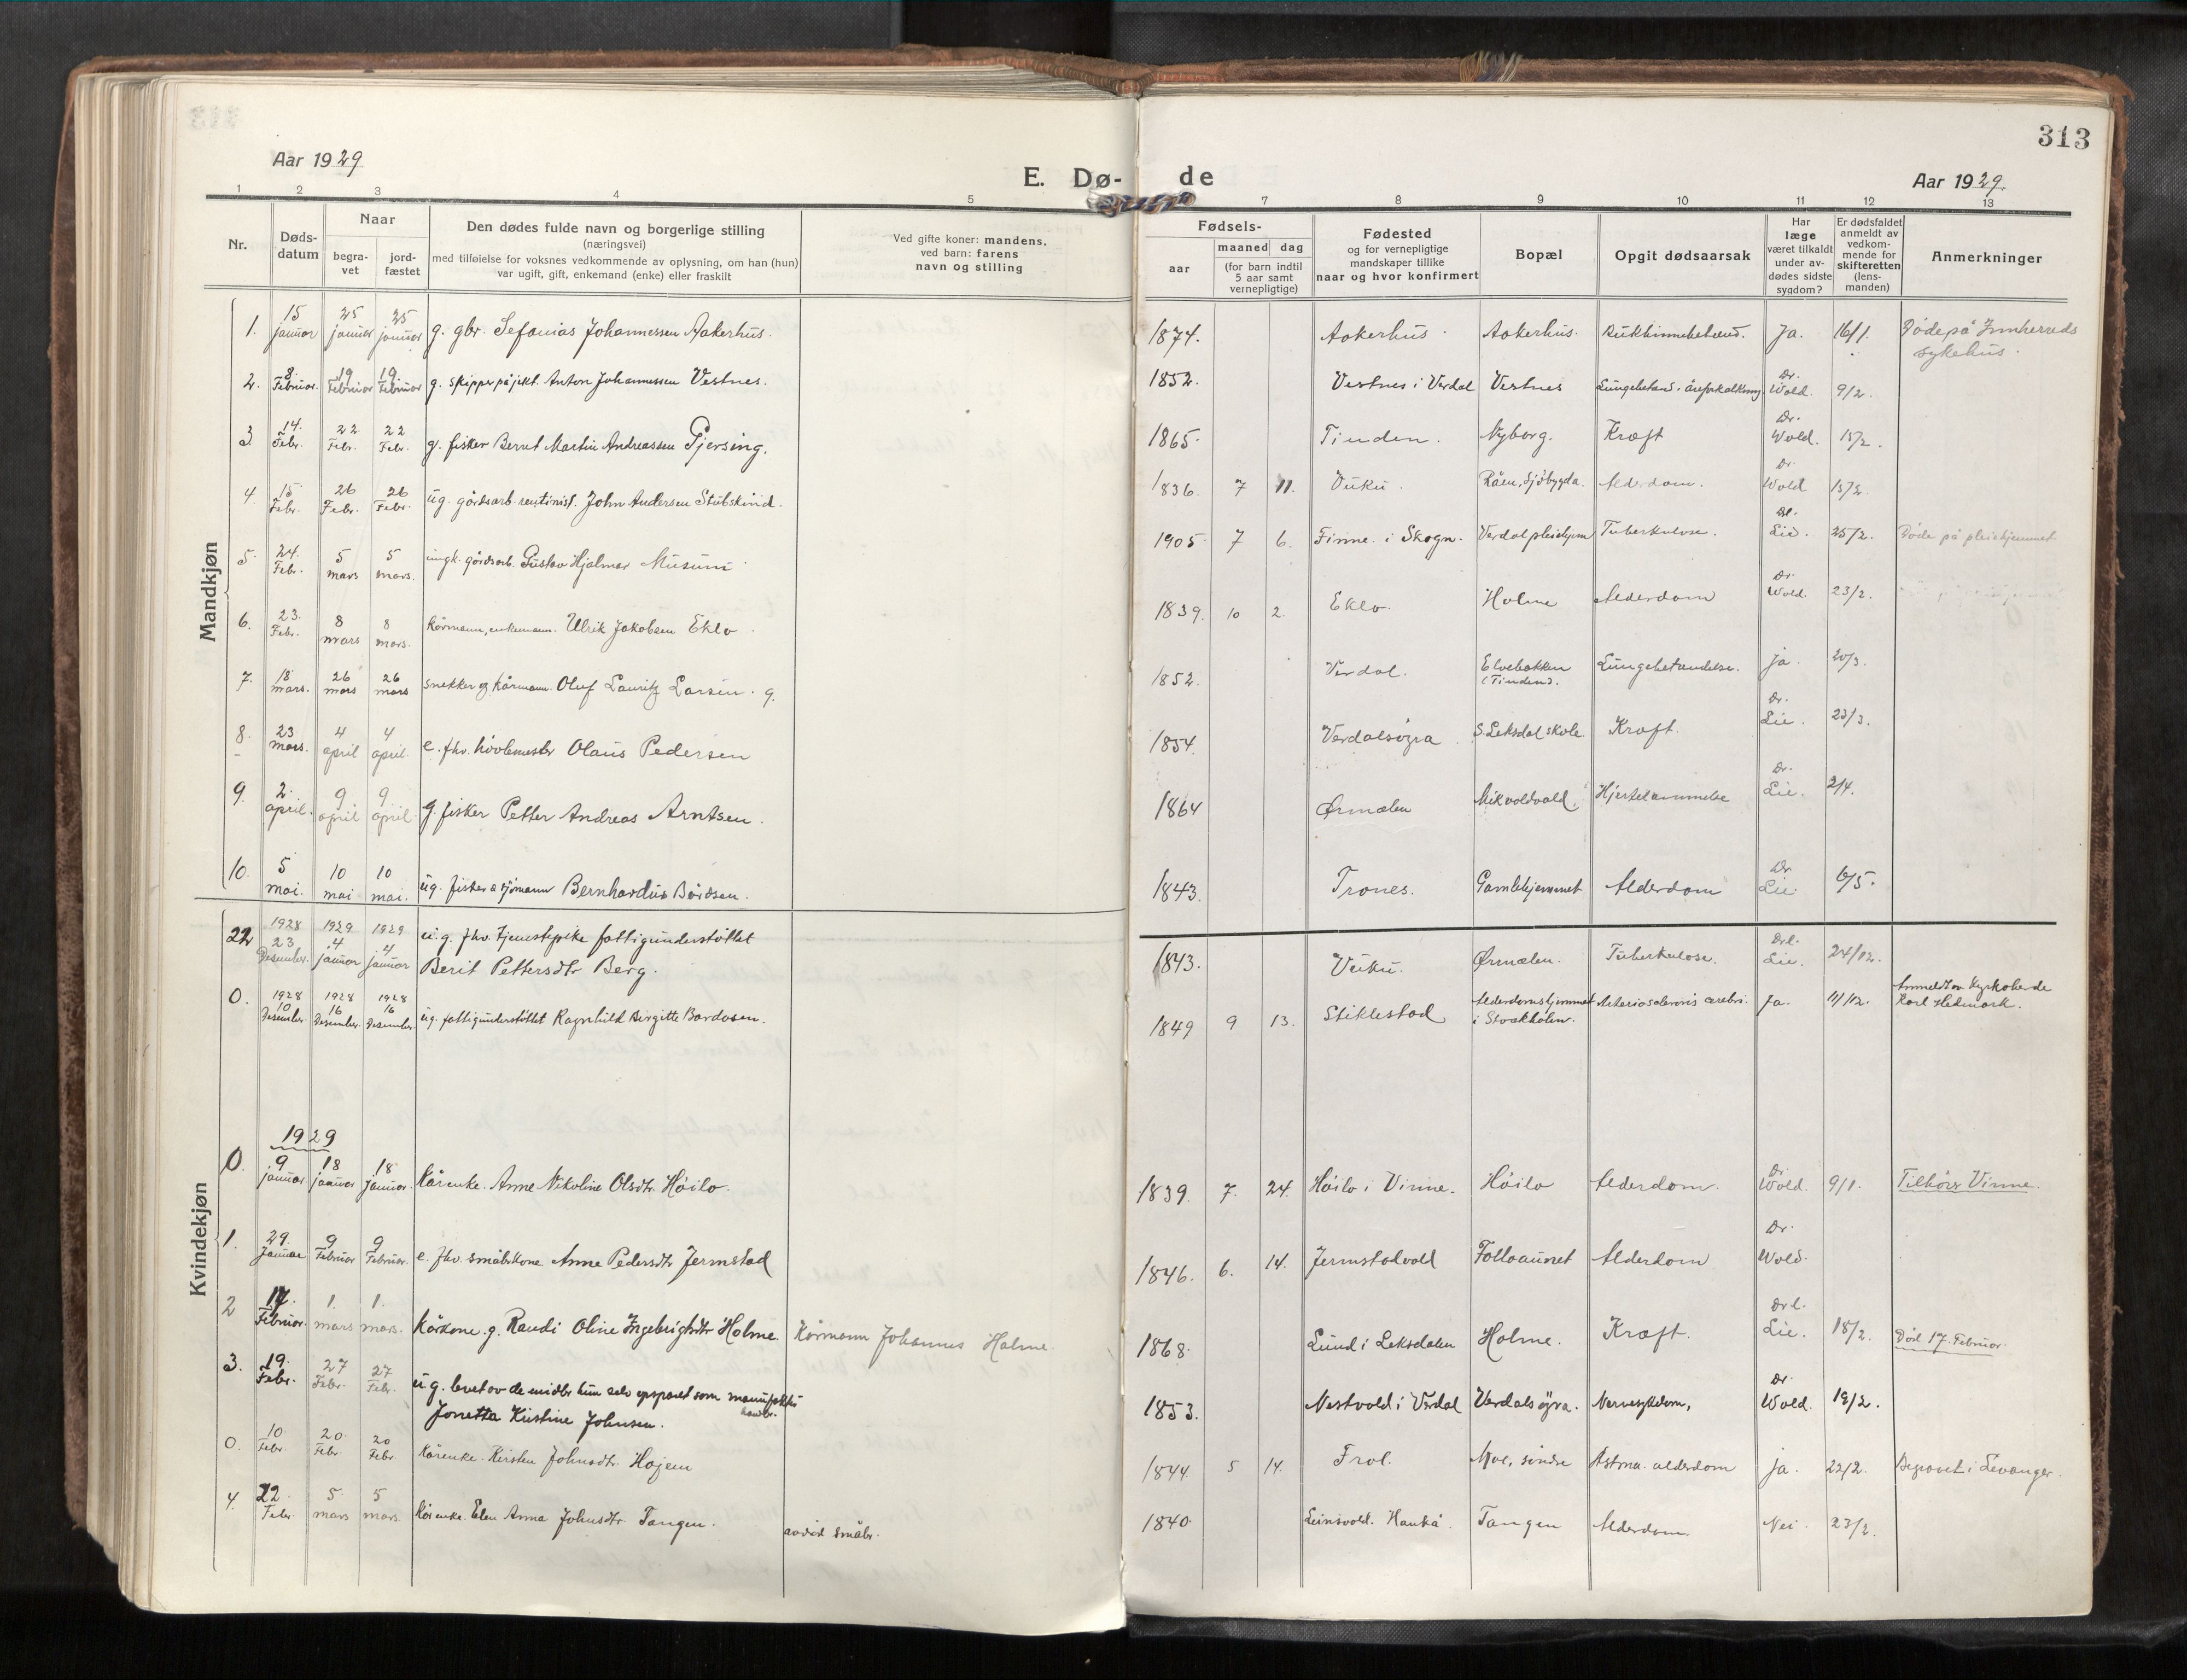 313
Aar 1929
E. Dø-
de
Aar 1929.
1 2 3 4 5 7 8 9 10 11 12 13
Nr.
Døds-
datum
Naar
begra-
vet
jord-
fæstet
Den dødes fulde navn og borgerlige stilling
(næringsvei)
med tilføielse for voksnes vedkommende av oplysning, om han (hun)
var ugift, gift, enkemand (enke) eller fraskilt
Ved gifte koner: mandens,
ved barn: farens
navn og stilling
Fødsels-
aar
maaned dag
(for barn indtil
5 aar samt
vernepligtige)
Fødested
og for vernepligtige
mandskaper tillike
naar og hvor konfirmert
Bopæl
Opgit dødsaarsak
Har
læge
været tilkaldt
under av-
dødes sidste
sygdom?
Er dødsfaldet
anmeldt av
vedkom-
mende for
skifteretten
(lens-
manden)
Anmerkninger
Mandkjøn
1. 15 januar 25 januar 25 januar g. gbr. Sefanias Johannessen Aakerhus. 1874. Aakerhus. Aakerhus. Ja. 16/1. Døde på Innherreds
sykehus.
2. 8. Februar. 19 Februar 19. Februar g. skipper på jekt. Anton Johannessen Vestnes. 1852. Vestnes i Verdal Vestnes Dr. Wold. 9/2.
3 14. Febr. 22 Febr. 22 Febr. g. fisker Bernt Martin Andreassen Gjersing. 1865. Tinden. Nyborg. Kræft Dr. Wold. 15/2.
4. 15. Febr. 26 Febr. 26 Febr. ug. gårdsarb. John Andersen Stubskind. 1836. 7 11. Vuku. Råen, Sjøbygda. Alderdom. Dr. Wold 15/2
5. 24. Febr. 5 mars 5 mars. ungk. gårdsarb. Gustav Hjalmar Musum 1905. 7 6. Finne i Skogn. Verdal pleiehjem Tuberkulose. Dr. Lie. 25/2. Døde på pleiehjemmet
6. 23. Febr. 8 mars 8 mars. Kårmann, enkemann. Ulrik Jakobsen Eklo. 1839. 10 2. Eklo. Holme Alderdom Dr. Wold. 23/2.
7. 18 mars. 26 mars 26 mars snekker og kårmann. Oluf Lauritz Larsen. g. 1852. Verdal. Elvebakken
(Tinden). Lungebetændelse. ja. 20/3.
8. 23 mars. 4 april 4 april e. fhv. høvlemester Olaus Pedersen 1854. Verdalsøra S. Leksdal skole. Kræft. Dr. Lie. 23/3.
9. 2. april. 9 april 9 april g. fisker Petter Andreas Arntsen. 1864 Ørmelen Mikvoldvald. Hjertelammelse Dr. Lie. 2/4.
10. 5 mai. 10 mai 10 mai. ug. fisker & sjømann Bernhardus Bårdsen. 1843. Trones. Gamlehjemmet Alderdom Dr. Lie. 6/5.
Kvindekjøn
22 1928 23 Desember. 1929 4 januar 1929 4 januar u.g. fhv. tjenestepike fattigunderstøttet
Berit Pettersdtr Berg. 1843. Vuku. Ørmelen. Tuberkulose. Lie. 24/12.
0. 1928 10 Desember. 1928 16 Desember 1928 16 Desember. ug. fattigunderstøttet Ragnhild Birgitte Bardosen. 1849 9 13. Stiklestad Alderdomshjemmet
i Stockholm. Arteriosclerosis cerebri. Ja. 11/12. Anmeldt av Kyrkoherde
Karl Hedmark.
1929
0. 9 januar 18 januar 18 Januar. Kårenke. Anne Nikoline Olsdtr. Høilo. 1839. 7. 24. Høilo i Vinne. Høilo Alderdom. Dr Wold. 9/1. Tilhører Vinne.
1. 29. Januar 9 Februar 9 Februar. e. fhv. småbrkone Anne Pedersdtr Jermstad 1846. 6. 14. Jermstadvald Folloaunet Alderdom Dr. Wold.
2 17. Februar. 1. mars 1. mars. Kårkone. g. Randi Oline Ingebrigtsdtr Holme. Kårmann Johannes Holme. 1868. Lund i Leksdalen Holme. Kræft. Lie. 18/2. Død 17. Februar.
3. 19. Febr. 27 Febr. 27 Febr. u.g. levet av de midler hun selv opsparet som
Jonetta Kristine Johnsen. 1853. Nestvold i Verdal Verdalsøra. Nervesykdom, Dr. Wold. 19/2.
0. 10. Febr. 20. Febr. 20 Febr Kårenke. Kirsten Johnsdtr. Hojem 1844. 5 14. Frol. Moe, søndre Astma. alderdom ja. 22/2. Begravet i Levanger.
4. 22 Febr. 5. mars 5 mars. Kårenke. Elen Anna Johnsdtr Tangen. avdød småbr. 1840. Leinsvald. Tangen Alderdom. Nei. 23/2.